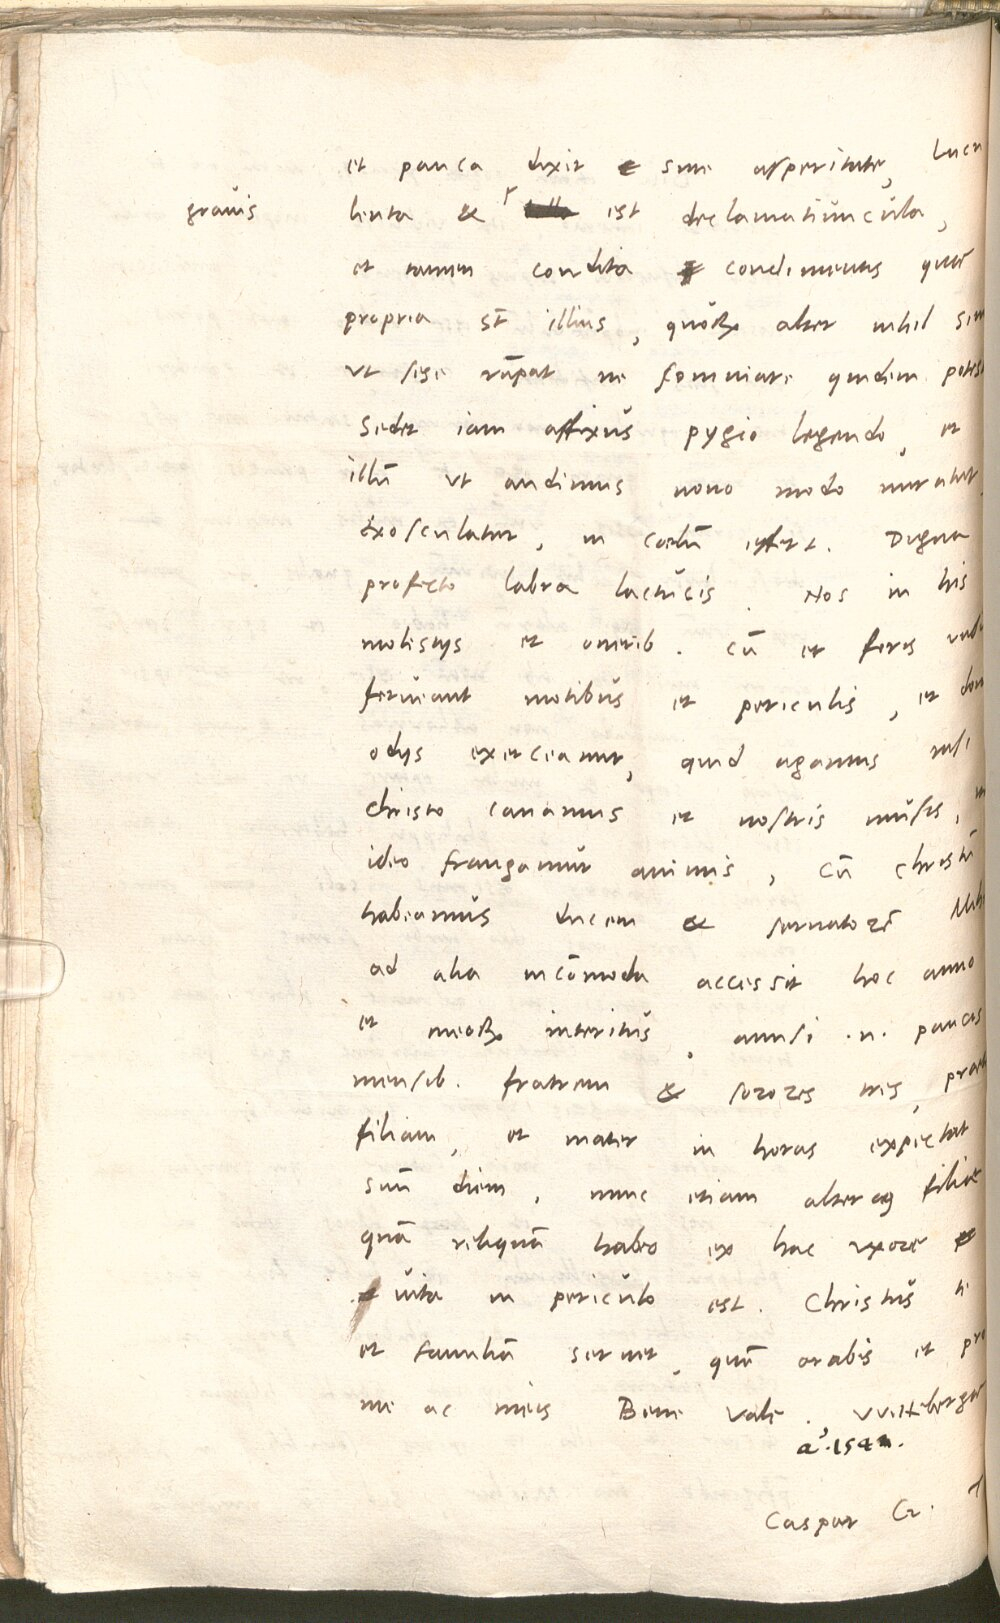 et pauca dixit & sine asperitate, Lucu
gravis
lenta & est declamatiuncula,
et tamen condita condimentis quae
propria st illius, quorum alter nihil sim
vt sese rumpat ne somniare quidem potest
Sedet iam affixus pygio legendo, et
illum vt audimus nouo modo miratur,
exosculatur, in coelum effert. Digna
profecto labra lactucis. Nos in his
molestijs et onerib. cum et foris
ferueant motibus et periculis, et dom
odijs exerceamur, quid agamus nisi
Christo canamus et nostris musis,
ideo frangamur animis, Cum christum
habeamus ducem & seruatorem
ad alia incommoda accessit hoc anno
et meorum interitus. amisi .n. paucis
mensib. fratrem & sorores tres,
filiam, et mater in horas expectat
suum diem, nunc etiam alteraq filia
quam reliquam habeo ex hac uxore
vita in periculo est. Christus
et familiam seruet, quem orabis et pro
me ac meis Bene vale. VVittebergae
a°.1541.
Caspar Cr.